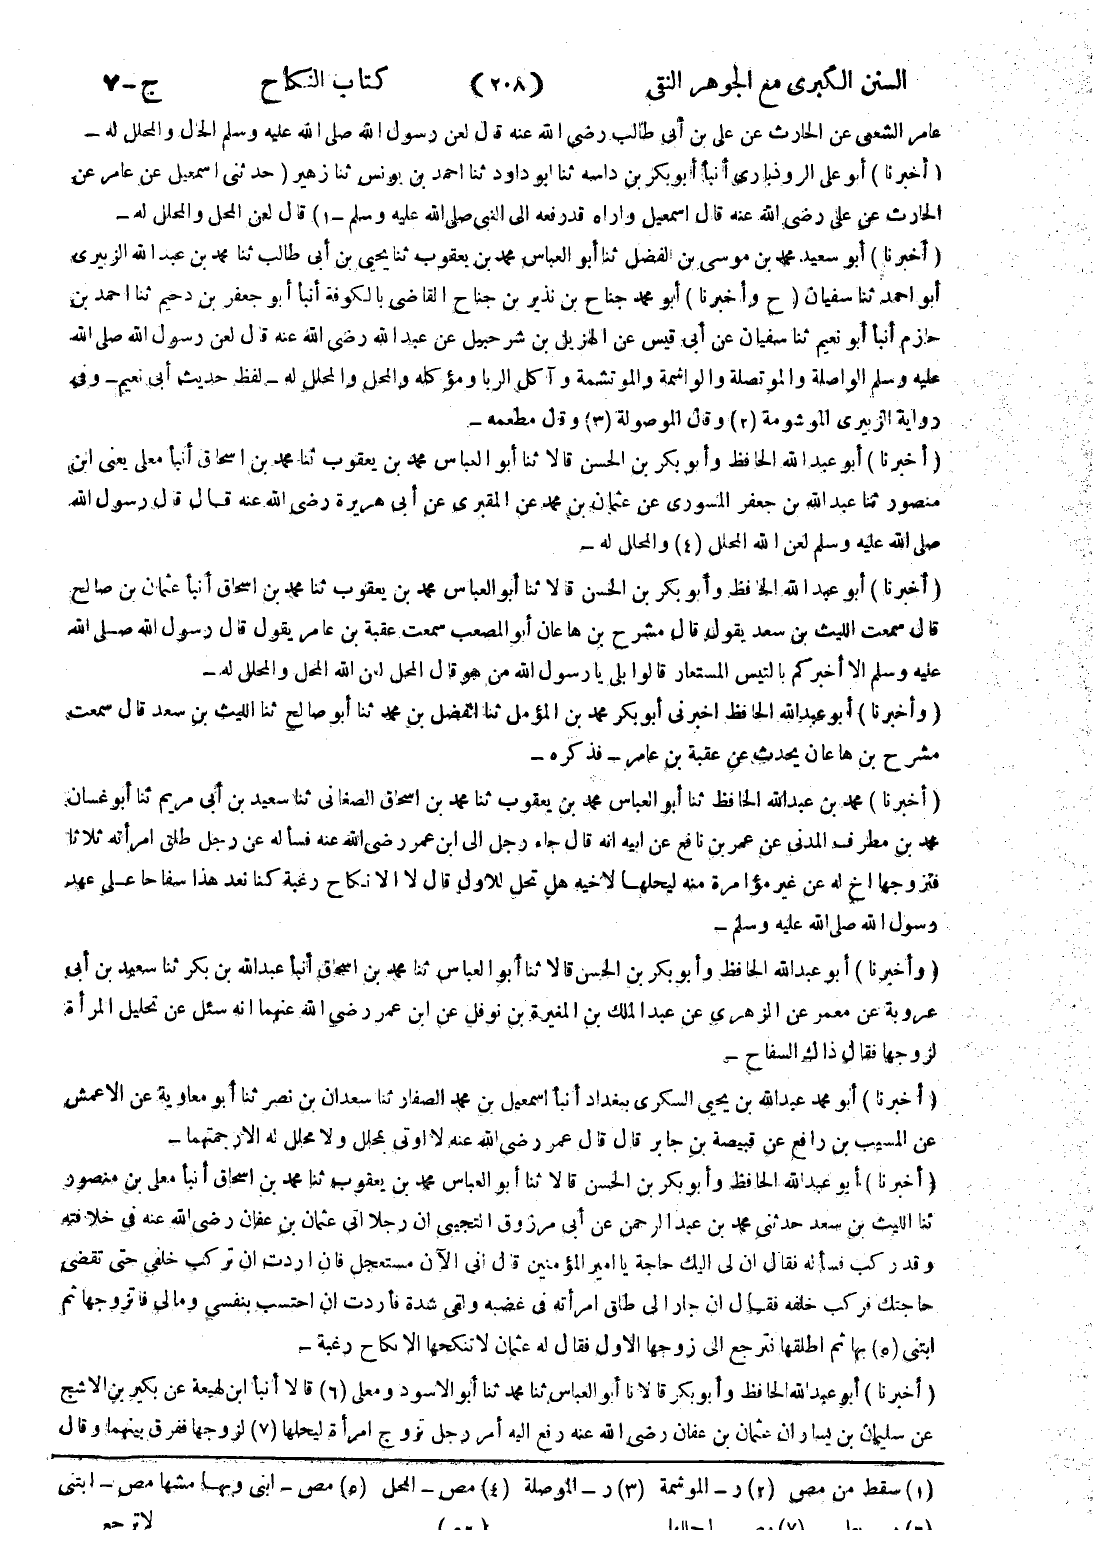 السنن الكبرى مع الجوهر النقى (٢٠٨) كتاب النكاح ج-٧
عامر الشعبى عن الحارث عن على بن أبى طالب رضى الله عنه قال لعن رسول الله صلى الله عليه وسلم الحال والمحلل له ــ
(أخبرنا) أبو على الروذبارى أنبأ أبو بكر بن داسه ثنا ابو داود ثنا احمد بن يونس ثنا زهير (حدثنى اسمعيل عن عامر عن
الحارث عن على رضى الله عنه قال اسمعيل واراه قد رفعه الى النبى صلى الله عليه وسلم ــ١) قال لعن المحل والمحلل له ــ
(أخبرنا) أبو سعيد محمد بن موسى بن الفضل ثنا أبو العباس محمد بن يعقوب ثنا يحيى بن أبى طالب ثنا محمد بن عبد الله الزبيرى
أبو احمد ثنا سفيان (ح وأخبرنا) أبو محمد جناح بن نذير بن جناح القاضى بالكوفة أنبأ أبو جعفر بن دحيم ثنا احمد بن
حازم أنبأ أبو نعيم ثنا سفيان عن أبى قيس عن الهزيل بن شرحبيل عن عبد الله رضى الله عنه قال لعن رسول الله صلى الله
عليه وسلم الواصلة والموتصلة والواشمة والموتشمة وآكل الربا ومؤكله والمحل والمحلل له ــ لفظ حديث أبى نعيم ــ وفى
رواية الزبيرى الموشومة (٢) وقال الموصولة (٣) وقال مطعمه ــ
(أخبرنا) أبو عبد الله الحافظ وأبو بكر بن الحسن قالا ثنا أبو العباس محمد بن يعقوب ثنا محمد بن اسحاق أنبأ معلى يعنى ابن
منصور ثنا عبد الله بن جعفر المسورى عن عثمان بن محمد عن المقبرى عن أبى هريرة رضى الله عنه قال قال رسول الله
صلى الله عليه وسلم لعن الله المحلل (٤) والمحلل له ــ
(أخبرنا) أبو عبد الله الحافظ وأبو بكر بن الحسن قالا ثنا أبو العباس محمد بن يعقوب ثنا محمد بن اسحاق أنبأ عثمان بن صالح
قال سمعت الليث بن سعد يقول قال مشرح بن هاعان أبو المصعب سمعت عقبة بن عامر يقول قال رسول الله صلى الله
عليه وسلم الا أخبركم بالتيس المستعار قالوا بلى يا رسول الله من هو قال المحل لعن الله المحل والمحلل له ــ
(وأخبرنا) أبو عبد الله الحافظ اخبرنى أبو بكر محمد بن المؤمل ثنا الفضل بن محمد ثنا أبو صالح ثنا الليث بن سعد قال سمعت
مشرح بن هاعان يحدث عن عقبة بن عامر ــ فذكره ــ
(أخبرنا) محمد بن عبد الله الحافظ ثنا أبو العباس محمد بن يعقوب ثنا محمد بن اسحاق الصغانى ثنا سعيد بن أبى مريم ثنا أبو غسان
محمد بن مطرف المدنى عن عمر بن نافع عن ابيه انه قال جاء رجل الى ابن عمر رضى الله عنه فسأله عن رجل طلق امرأته ثلاثا
فتزوجها اخ له عن غير مؤامرة منه ليحلها لاخيه هل تحل للاول قال لا الا نكاح رغبة كنا نعد هذا سفاحا على عهد
رسول الله صلى الله عليه وسلم ــ
(وأخبرنا) أبو عبد الله الحافظ وأبو بكر بن الحسن قالا ثنا أبو العباس ثنا محمد بن اسحاق أنبأ عبد الله بن بكر ثنا سعيد بن أبى
عروبة عن معمر عن الزهرى عن عبد الملك بن المغيرة بن نوفل عن ابن عمر رضى الله عنهما انه سئل عن تحليل المرأة
لزوجها فقال ذاك السفاح ــ
(أخبرنا) أبو محمد عبد الله بن يحيى السكرى ببغداد أنبأ اسمعيل بن محمد الصفار ثنا سعدان بن نصر ثنا أبو معاوية عن الاعمش
عن المسيب بن رافع عن قبيصة بن جابر قال قال عمر رضى الله عنه لا اوتى بمحلل ولا محلل له الا رجمتهما ــ
(أخبرنا) أبو عبد الله الحافظ وأبو بكر بن الحسن قالا ثنا أبو العباس محمد بن يعقوب ثنا محمد بن اسحاق أنبأ معلى بن منصور
ثنا الليث بن سعد حدثنى محمد بن عبد الرحمن عن أبى مرزوق التجيبى ان رجلا اتى عثمان بن عفان رضى الله عنه فى خلافته
وقد ركب فسأله فقال ان لى اليك حاجة يا امير المؤمنين قال انى الآن مستعجل فان اردت ان تركب خلفى حتى تقضى
حاجتك فركب خلفه فقال ان جارا لى طلق امرأته فى غضبه ولقى شدة فأردت ان احتسب بنفسى ومالى فاتزوجها ثم
ابتنى (٥) بها ثم اطلقها فترجع الى زوجها الاول فقال له عثمان لا تنكحها الا نكاح رغبة ــ
(أخبرنا) أبو عبد الله الحافظ وأبو بكر قالا نا أبو العباس ثنا محمد ثنا أبو الاسود ومعلى (٦) قالا أنبأ ابن لهيعة عن بكير بن الاشج
عن سليمان بن يسار ان عثمان بن عفان رضى الله عنه رفع اليه أمر رجل تزوج امرأة ليحلها (٧) لزوجها ففرق بينهما وقال
(١) سقط من مص (٢) ر ــ الموشمة (٣) ر ــ الموصلة (٤) مص ــ المحل (٥) مص ــ ابنى وبها مشها مص ــ ابتنى
لا ترجع